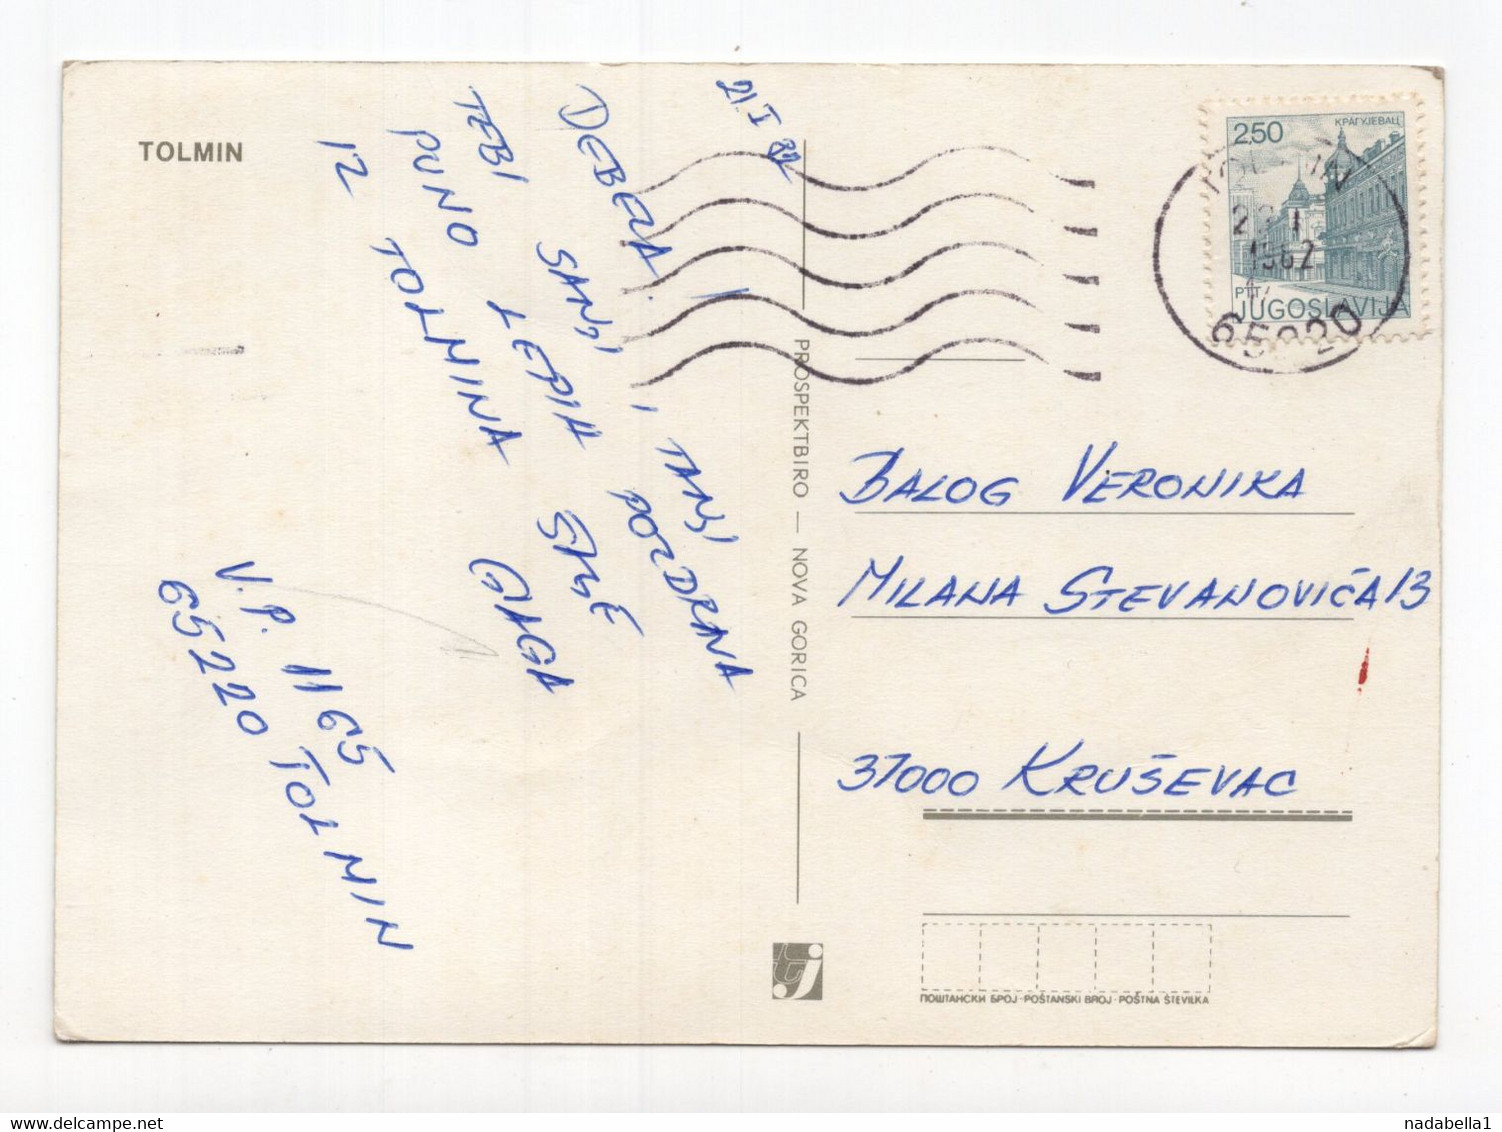 TOLMIN
21. I 82
DEBELA!
TEBI SANJI I TANJI
PUNO LEPIH POZDRAVA
IZ TOLMINA ŠALJE
GAGA
V.P. 1165
65220 TOLMIN
PROSPEKTBIRO — NOVA GORICA
2,50
КРАГУЈЕВАЦ
PTT
JUGOSLAVIJA
TOLMIN
1982
BALOG VERONIKA
MILANA STEVANOVIĆA 13
37000 KRUŠEVAC
tj
ПОШТАНСКИ БРОЈ · POŠTANSKI BROJ · POŠTNA ŠTEVILKA
delcampe.net
nadabella1